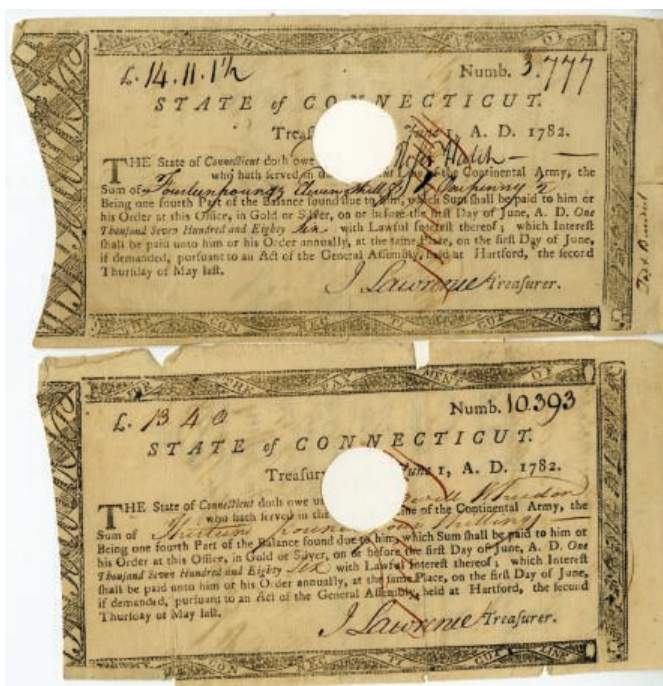 FOR THE PAY OF
£. 14.11.1½ Numb. 3.777
STATE of CONNECTICUT.
Treasu June 1, A. D. 1782.
THE State of Connecticut doth owe Hatch
who hath served in the Line of the Continental Army, the
Sum of Fourteen pounds Eleven Shill One penny ½
Being one fourth Part of the Balance found due to him, which Sum shall be paid to him or
his Order at this Office, in Gold or Silver, on or before the first Day of June, A. D. One
Thousand Seven Hundred and Eighty Six with Lawful Interest thereof; which Interest
shall be paid unto him or his Order annually, at the same Place, on the first Day of June,
if demanded, pursuant to an Act of the General Assembly, held at Hartford, the second
Thursday of May last.
J Lawrence Treasurer.
CON NEC CUT LINE
FOR THE PAY MENT OF
£. 13 4 0 Numb. 10.393
STATE of CONNECTICUT.
Treasur June 1, A. D. 1782.
THE State of Connecticut doth owe un
who hath served in the ne of the Continental Army, the
Sum of Thirteen Pound Shilling
Being one fourth Part of the Balance found due to him, which Sum shall be paid to him or
his Order at this Office, in Gold or Silver, on or before the first Day of June, A. D. One
Thousand Seven Hundred and Eighty Six with Lawful Interest thereof; which Interest
shall be paid unto him or his Order annually, at the same Place, on the first Day of June,
if demanded, pursuant to an Act of the General Assembly, held at Hartford, the second
Thursday of May last.
J Lawrence Treasurer.
CON NEC TI CUT LINE